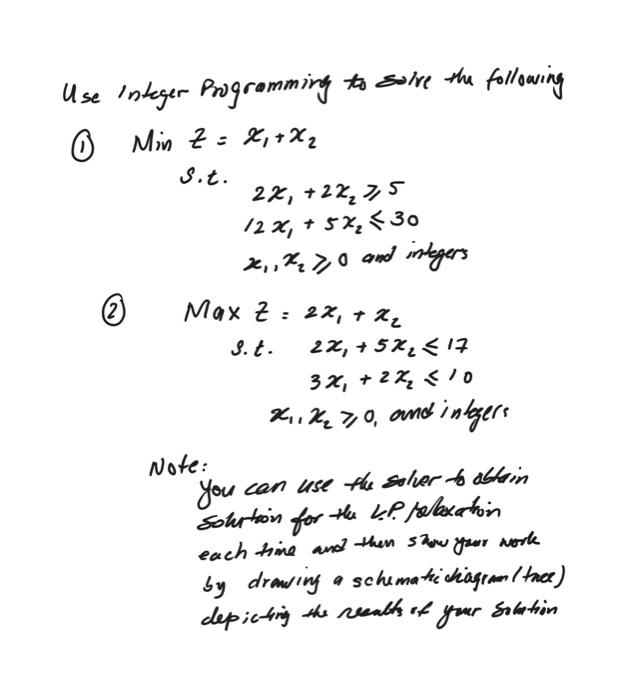 Use Integer Programming to solve the following
① Min Z = x₁ + x₂
s.t.
2x₁ + 2x₂ ⩾ 5
12x₁ + 5x₂ ⩽ 30
x₁, x₂ ⩾ 0 and integers
② Max Z = 2x₁ + x₂
s.t. 2x₁ + 5x₂ ⩽ 17
3x₁ + 2x₂ ⩽ 10
x₁, x₂ ⩾ 0, and integers
Note:
you can use the solver to obtain
solution for the L.P. relaxation
each time and then show your work
by drawing a schematic diagram (tree)
depicting the results of your solution